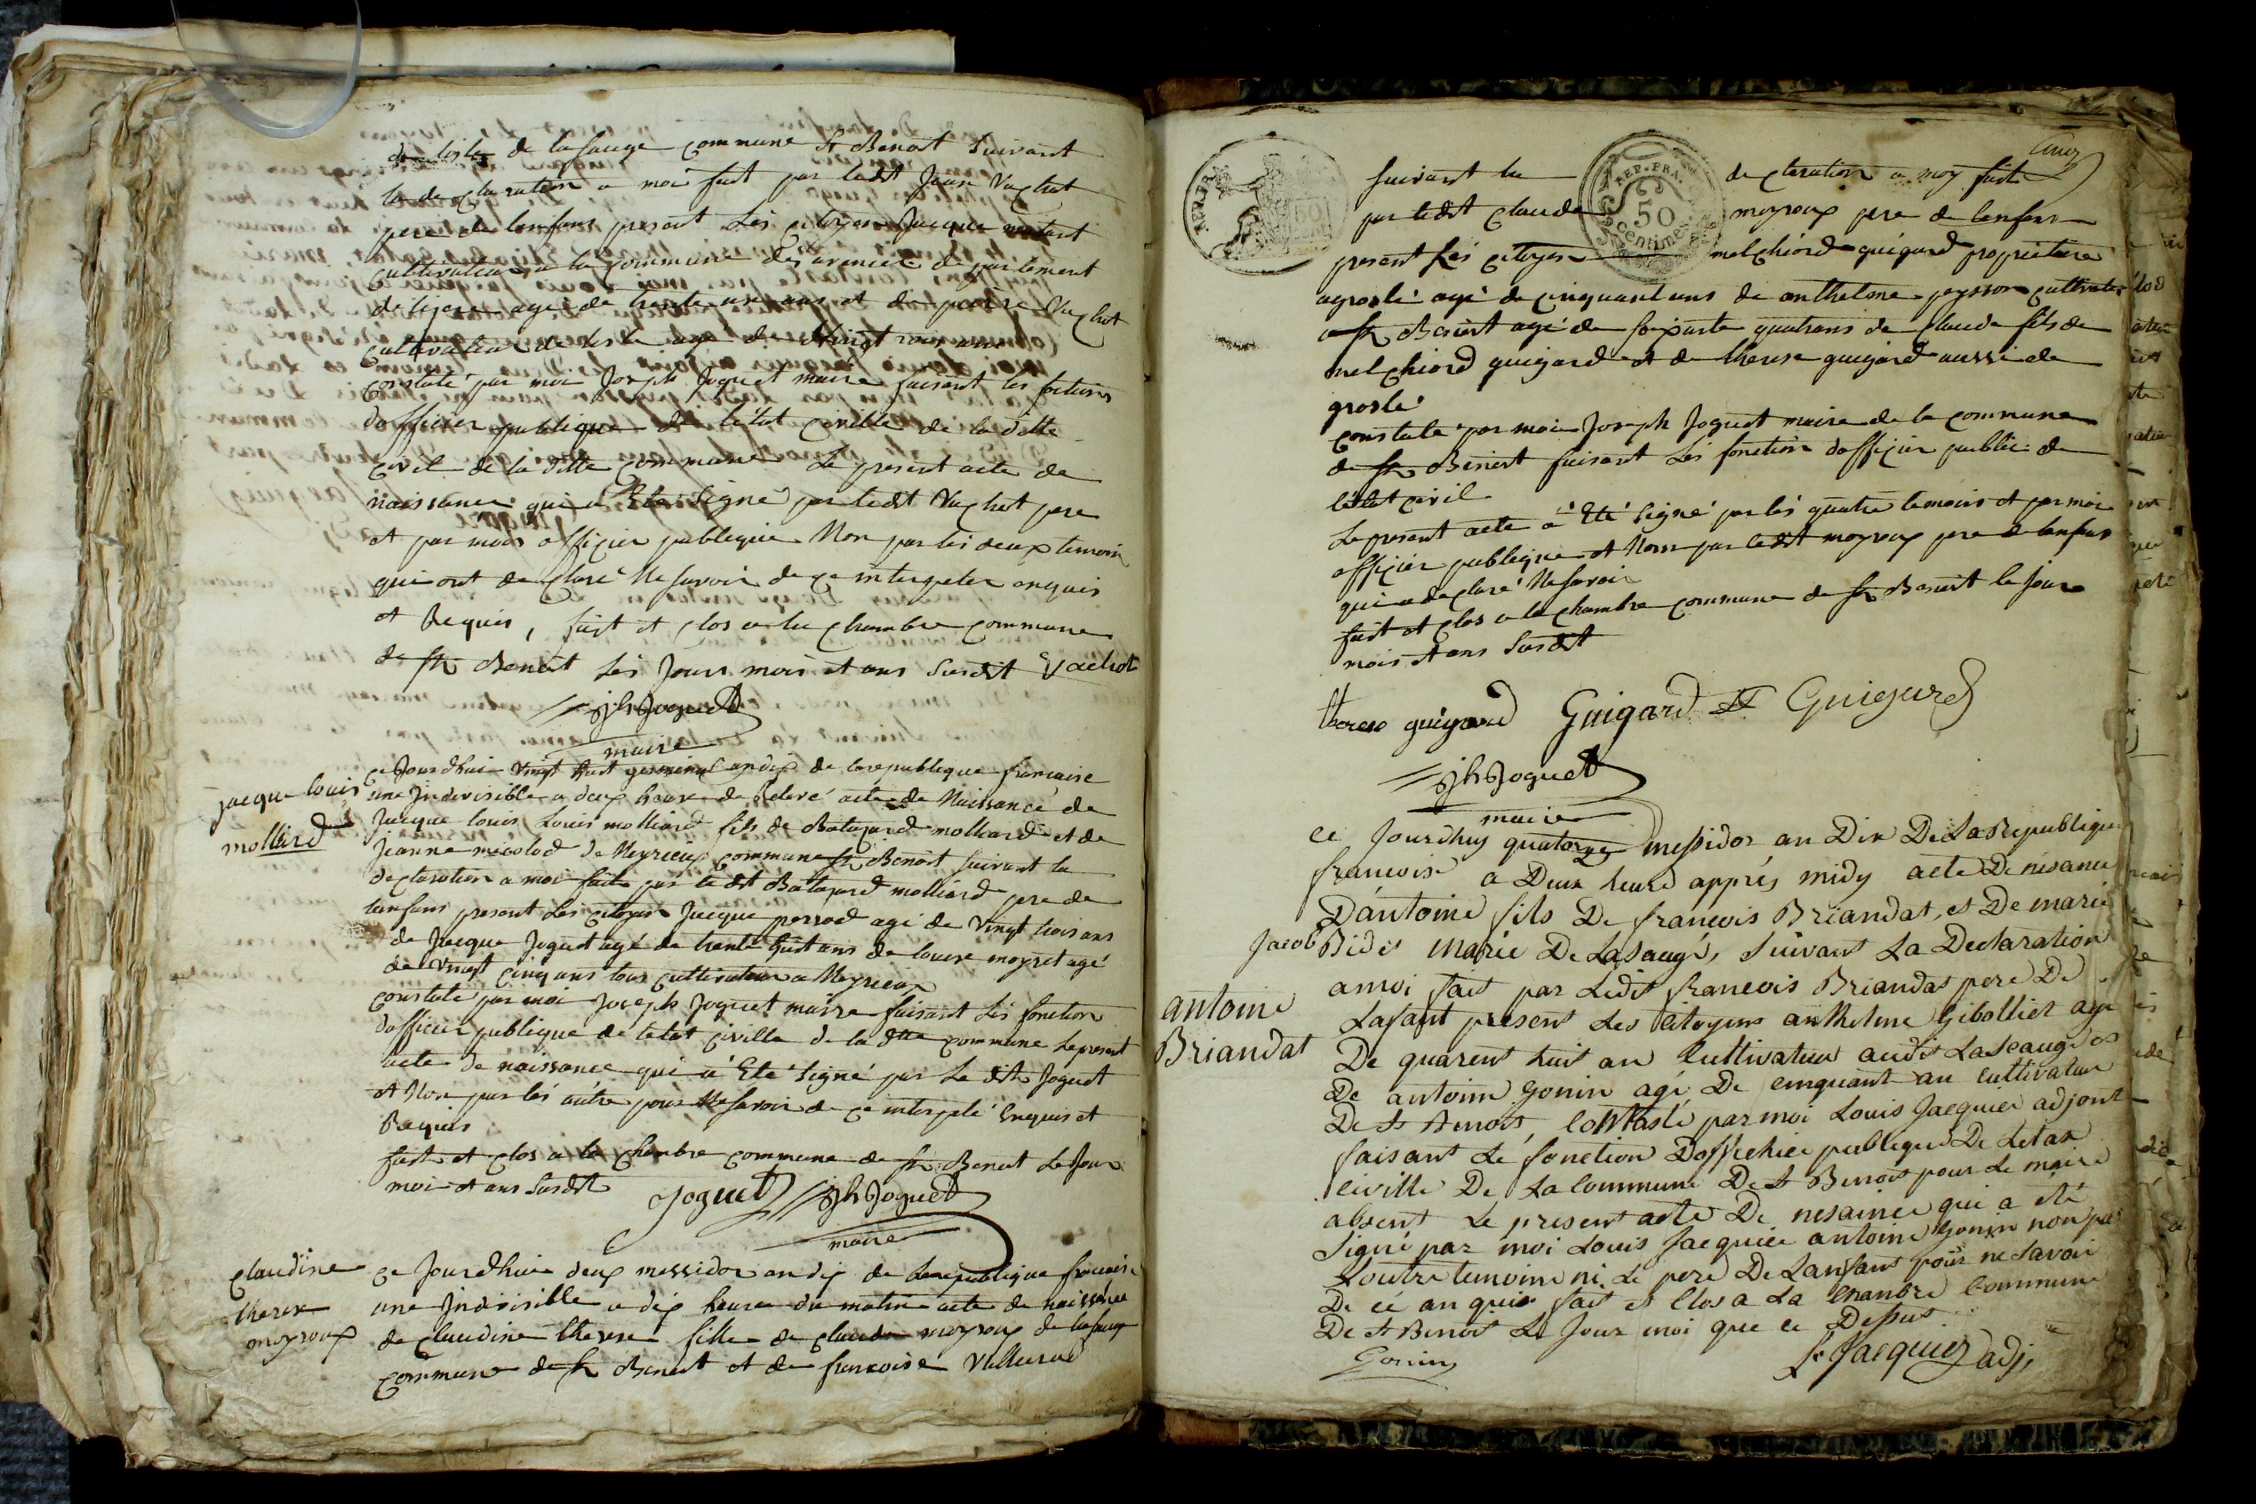 de la sauge commune st Benoit Suivant
la declaration a moi fait par ledit Jean Vachot
pere de lenfans present Les citoyen Jacque
cultivateur a la commune des departement
de lisere age de trente un ans et de pierre Vachot
cultivateur de age de Vingt trois ans
constaté par moi Joseph Joguet maire faisant les fonctions
dofficier publique de létat civille de la ditte
civil de la ditte commune Le present acte de
naissance qui a Eté Signé par ledit Vachot pere
et par mois officier publique Non par les deux temoin
qui ont declaré Ne savoir de ce interpeter enquis
et Requis, fait et clos a la chambre commune
de st Benoit Les Jours mois et ans Susdit Vachot
jh Joguet
maire
jacque louis
molliard
ce Jourdhui Vingt huit germinal an dix de la republique francaise
une Indivisible a deux heure de relevé acte de Naissance de
Jacque louis Louis molliard fils de Batazard molliard et de
Jeanne de Meyrieux commune st Benoit suivant la
declaration a moi faite par le dit Batazard molliard pere de
lenfans present Les citoyen Jacque perrod agé de Vingt trois ans
de Jacque Joguet agé de trente huit ans de louis moyret agé
de Vingt cinq ans tous cultivateur a Meyrieux
constaté par moi Joseph Joguet maire faisant Les fonction
dofficier publique de letat civille de la dtte commune Le present
acte de naissance qui a Eté Signé par Le dit Joguet
et Non par lés autre pour Ne savoir de ce interpelé Enquis et
Requis
fait et clos a la chambre commune de st Benoit Le Jour
moi et ans Susdit Joguet jh Joguet
maire
claudine
therese
moyroux
ce Jourdhui deux messidor an dix de La republique francaise
une Indivisible a dix heure du matin acte de naissance
de claudine therese fille de claude moyroux de lasauge
commune de st Benoit et de francoise
cinq
AFF.ETR
REP.FRA.
50
centimes
suivant la declaration a moy fait
par ledit claude moyroux pere de lenfans
present Les citoyen melchiord guigard proprietaire
agroslé agé de cinquant ans de anthelme peysson cultivateur
a st Benoit agé de soixante quatrans de claude fils de
melchiord guigard et de therese guigard aussi de
groslé
constaté par moi Joseph Joguet maire de la commune
de st Benoit faisant Les fonction dofficier public de
létat civil
Le present acte a Eté Signé par lés quatre temoins et par moi
officier publique et Non par ledit moyroux pere de lenfans
qui a declaré Ne savoir
fait et clos a la chambre commune de st Benoit le Jour
mois et ans Susdit
therese guigard Guigard Guigard
jh Joguet
maire
ce Jourdhuy quatorze messidor an Dix De La Republique
francoise a Deux heure apprés midy acte De nesance
Dantoine fils De francois Briandat, et De marie
Jacob Bidet Marie De Lasaugé, suivant La Declaration
antoine
Briandat
amoi fait par Ledit francois Briandat pere De
Lafant present Les citoyens anthelme Gibollier agé
De quarent huit an Cultivateur audit Laseauge
De antoine gonin agé De cinquant an cultivateur
De St Benoit, Contasté par moi Louis Jacquier adjont
faisant Lé fonction Doffichiee publique De Letat
civille De La Commune De St Benoit pour Le maire
absent Le present acte De nesaince qui a eté
Signé par moi Louis Jacquier antoine gonin non pas
Loutre temoin ni Le pere De Lanfant pour ne savoir
De cé an quis fait et Clos a La Chanbre Commune
De St Benoit Le Jour moi que ce Dessus
Gonin L. Jacquier adj.